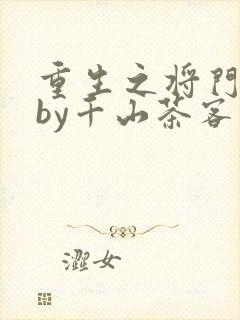 重生之将門
by千山茶客
澀女